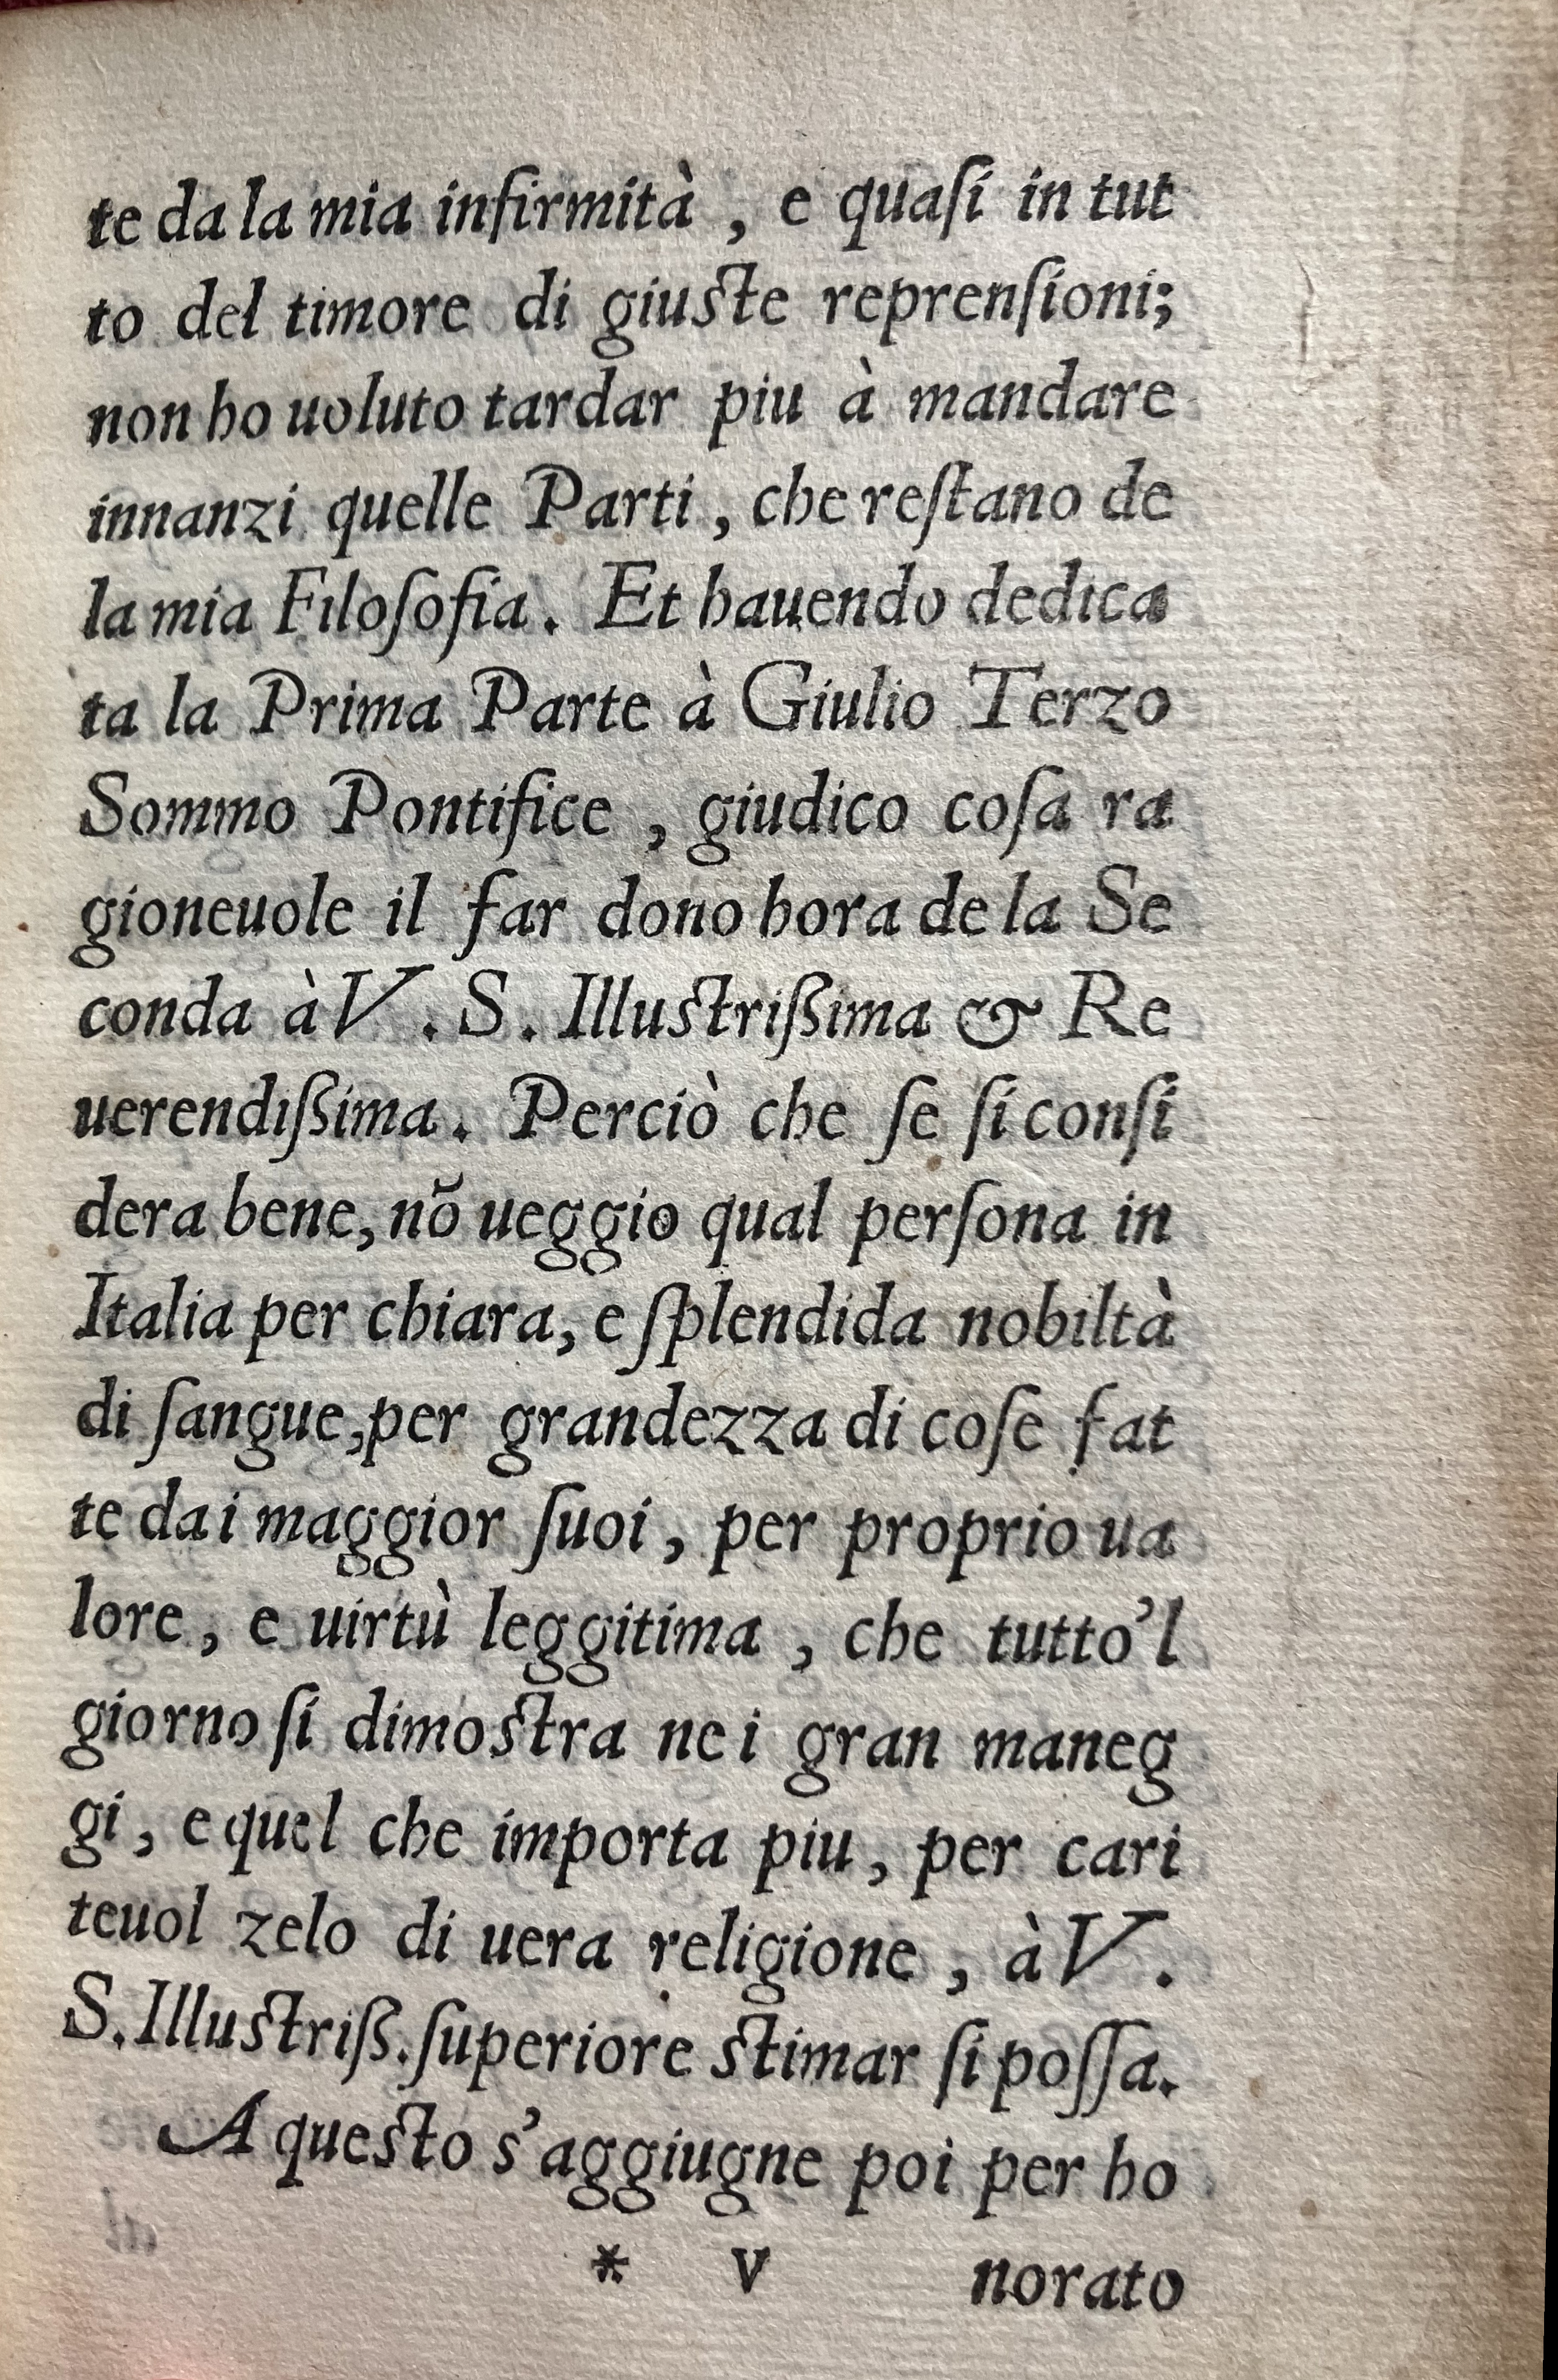 te da la mia infirmità, e quaſi in tut
to del timore di giuſte reprenſioni;
non ho uoluto tardar piu à mandare
innanzi quelle Parti, che reſtano de
la mia Filoſofia. Et hauendo dedica
ta la Prima Parte à Giulio Terzo
Sommo Pontifice, giudico coſa ra
gioneuole il far dono hora de la Se
conda à V. S. Illuſtriſsima & Re
uerendiſsima. Perciò che ſe ſi conſi
dera bene, nõ ueggio qual perſona in
Italia per chiara, e ſplendida nobiltà
di ſangue, per grandezza di coſe fat
te da i maggior ſuoi, per proprio ua
lore, e uirtù leggitima, che tutto'l
giorno ſi dimoſtra ne i gran maneg
gi, e quel che importa piu, per cari
teuol zelo di uera religione, à V.
S. Illuſtriſs. ſuperiore ſtimar ſi poſſa.
A queſto s'aggiugne poi per ho
* v norato